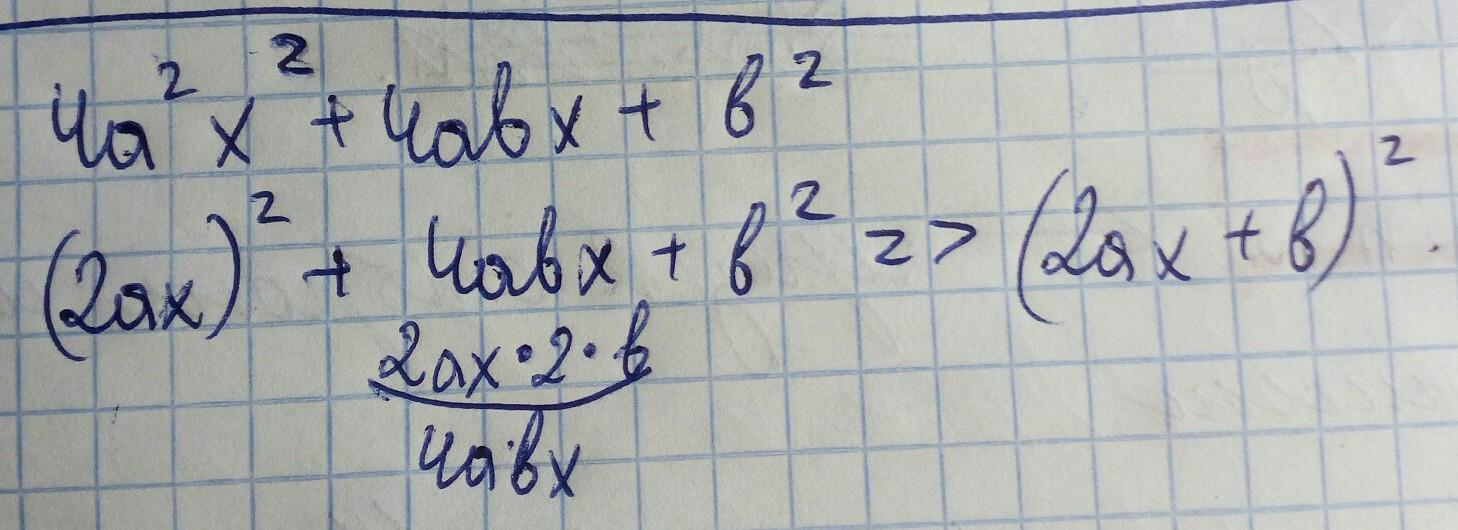 4a² x² + 4abx + b²
(2ax)² + 4abx + b² => (2ax + b)².
2ax·2·b
4abx